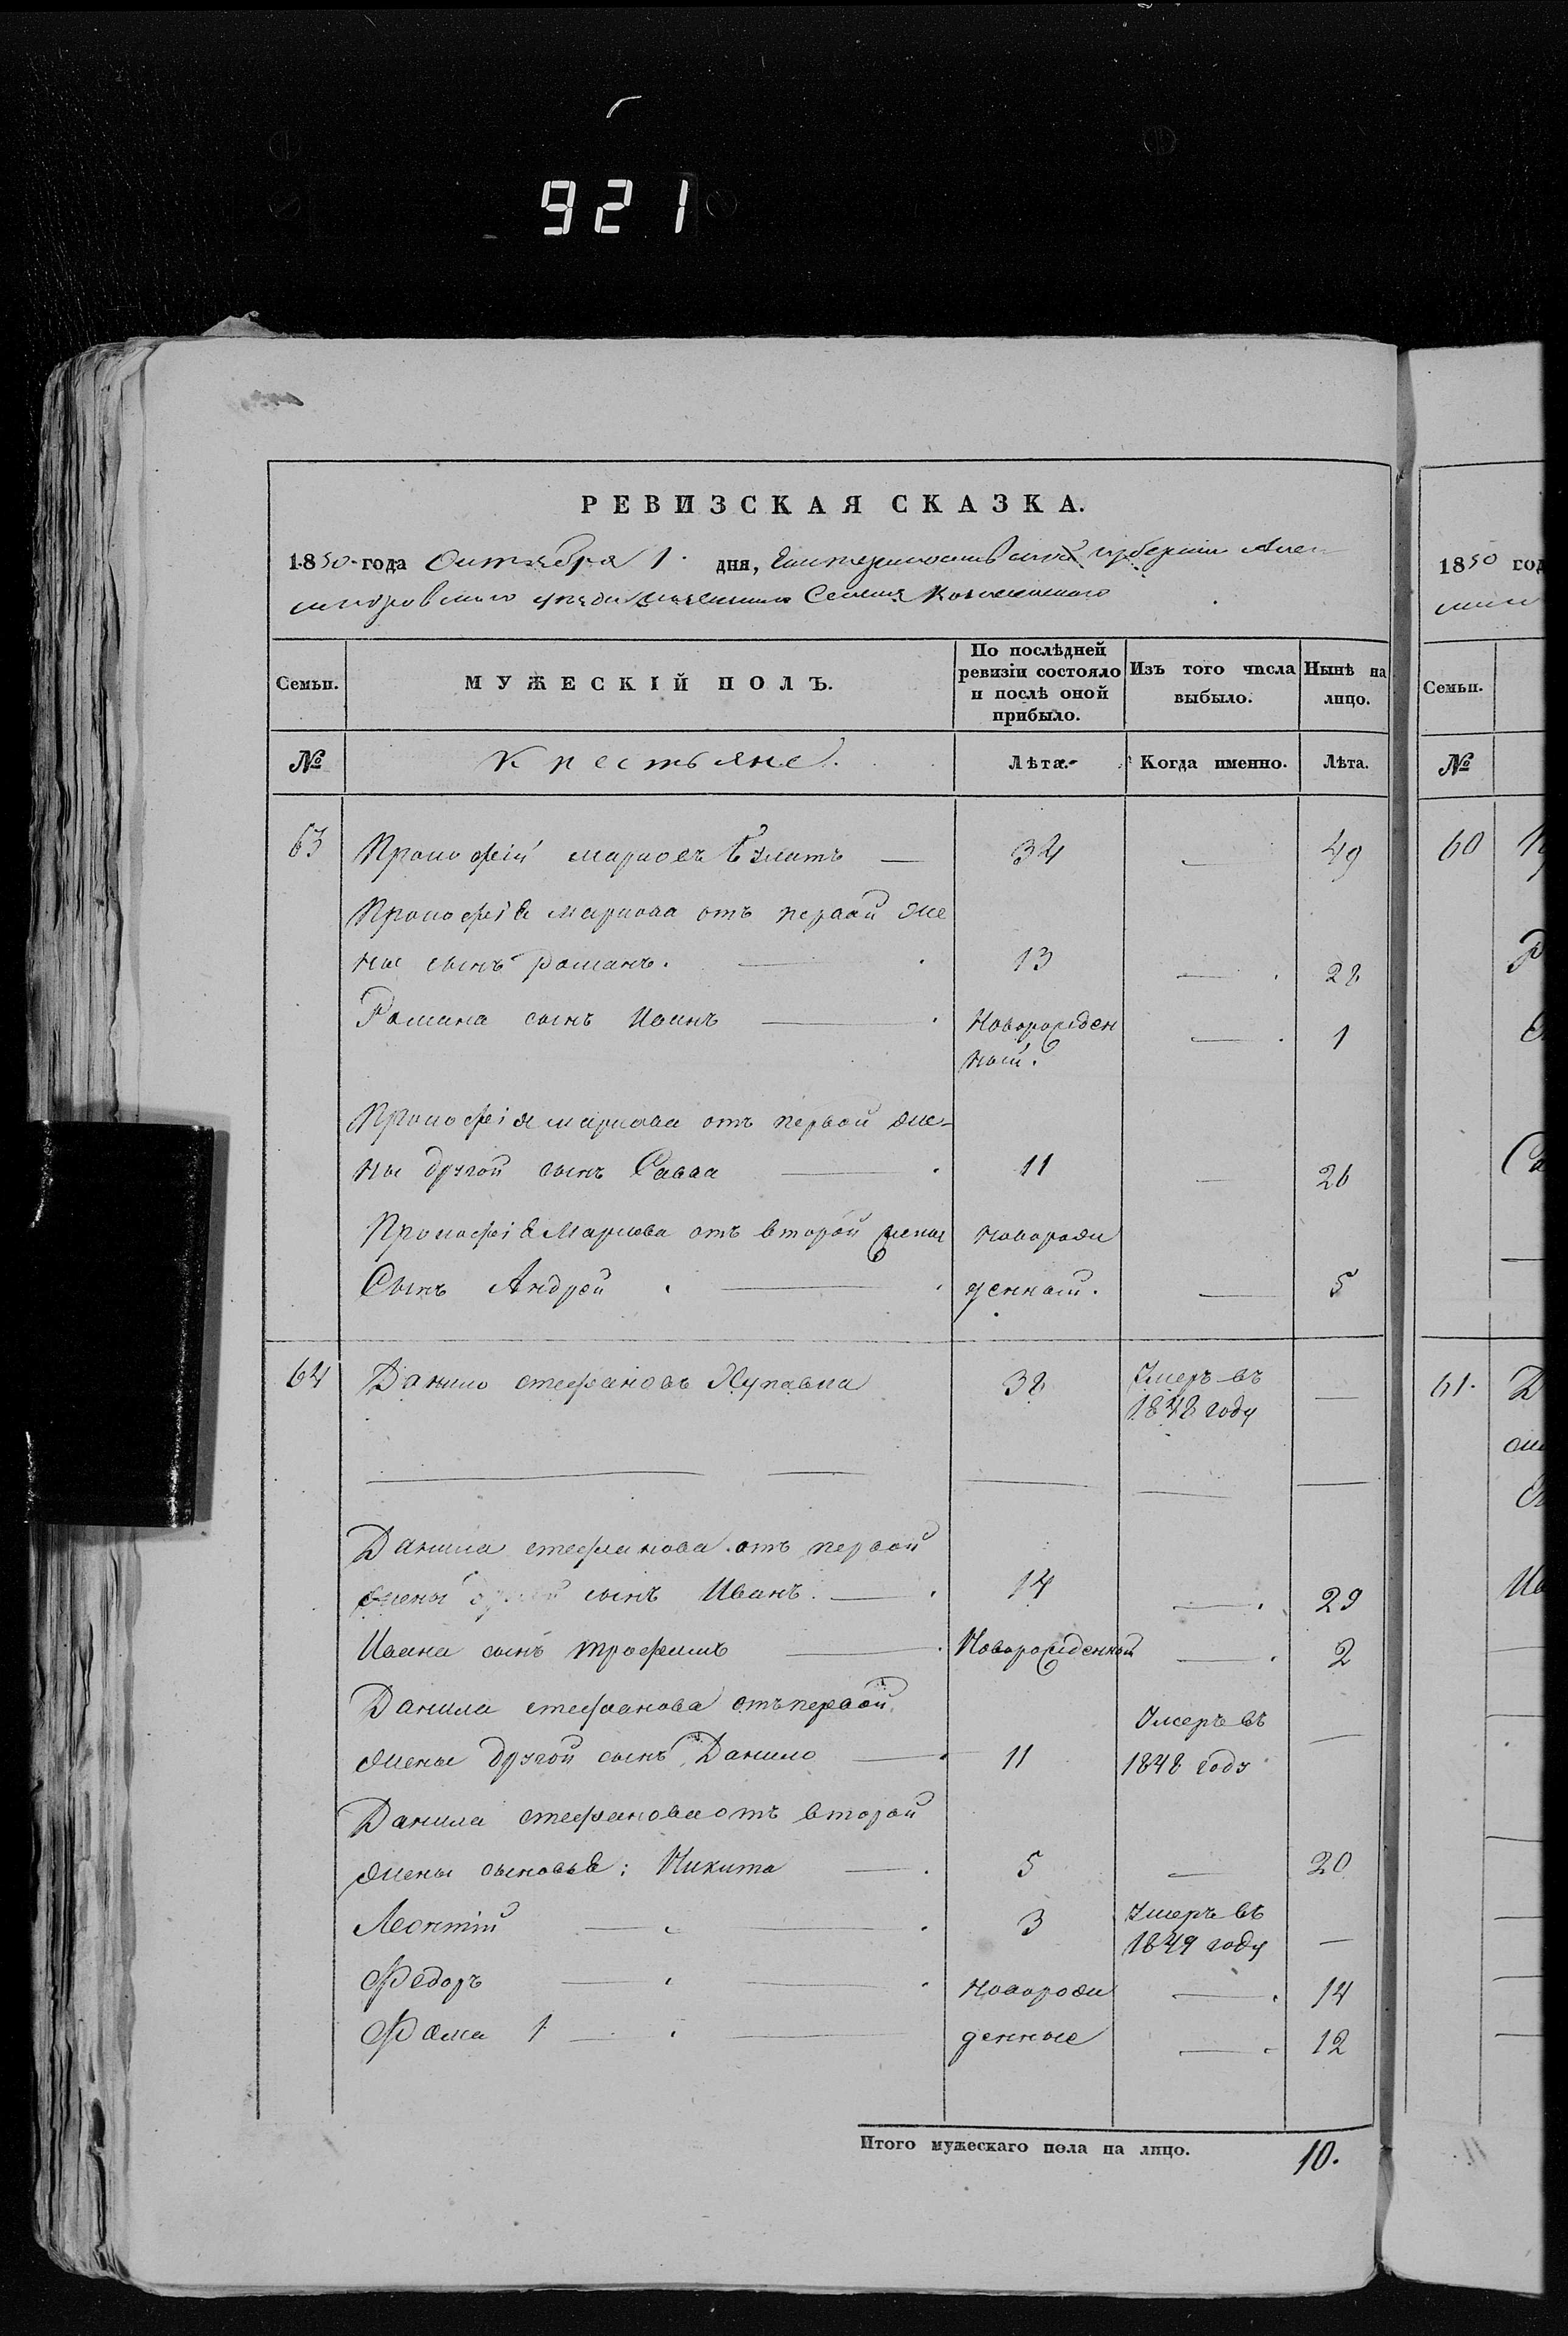 921
РЕВИЗСКАЯ СКАЗКА.
1850 года Октября 1 дня, Екатеринославской губернiи Алек
сандровского уѣзда Селенiя
Семьи. МУЖЕСКІЙ ПОЛЪ. По послѣдней ревизіи состояло и послѣ оной прибыло. Изъ того числа выбыло. Нынѣ на лицо.
№ Крестьяне. Лѣта. Когда именно. Лѣта.
63 Прокофій Марковъ — 34 — 49
Прокофія Маркова отъ первой же
ны сынъ Романъ. — 13 — 28
Романа сынъ Иванъ — Новорожден — 1
ный.
Прокофія Маркова отъ первой же-
ны другой сынъ Савва — 11 — 26
Прокофія Маркова отъ второй жены новорож
Сынъ Андрей — денный. — 5
64 Данило Стефановъ Купавка 38 Умеръ въ —
1848 году
Данила Стефанова отъ первой
жены сынъ Иванъ. — 14 — 29
Ивана сынъ Трофимъ — Новорожденный — 2
Данила Стефанова отъ первой Умеръ въ —
жены другой сынъ Данило — 11 1848 году
Данила Стефанова отъ второй
жены сыновья: Никита — 5 — 20
Леонтій — 3 Умеръ въ
1849 году —
Федоръ — новорож — 14
Фома 1 — денные — 12
Итого мужескаго пола на лицо. 10.
1850 год
Семьи.
№
60
61.